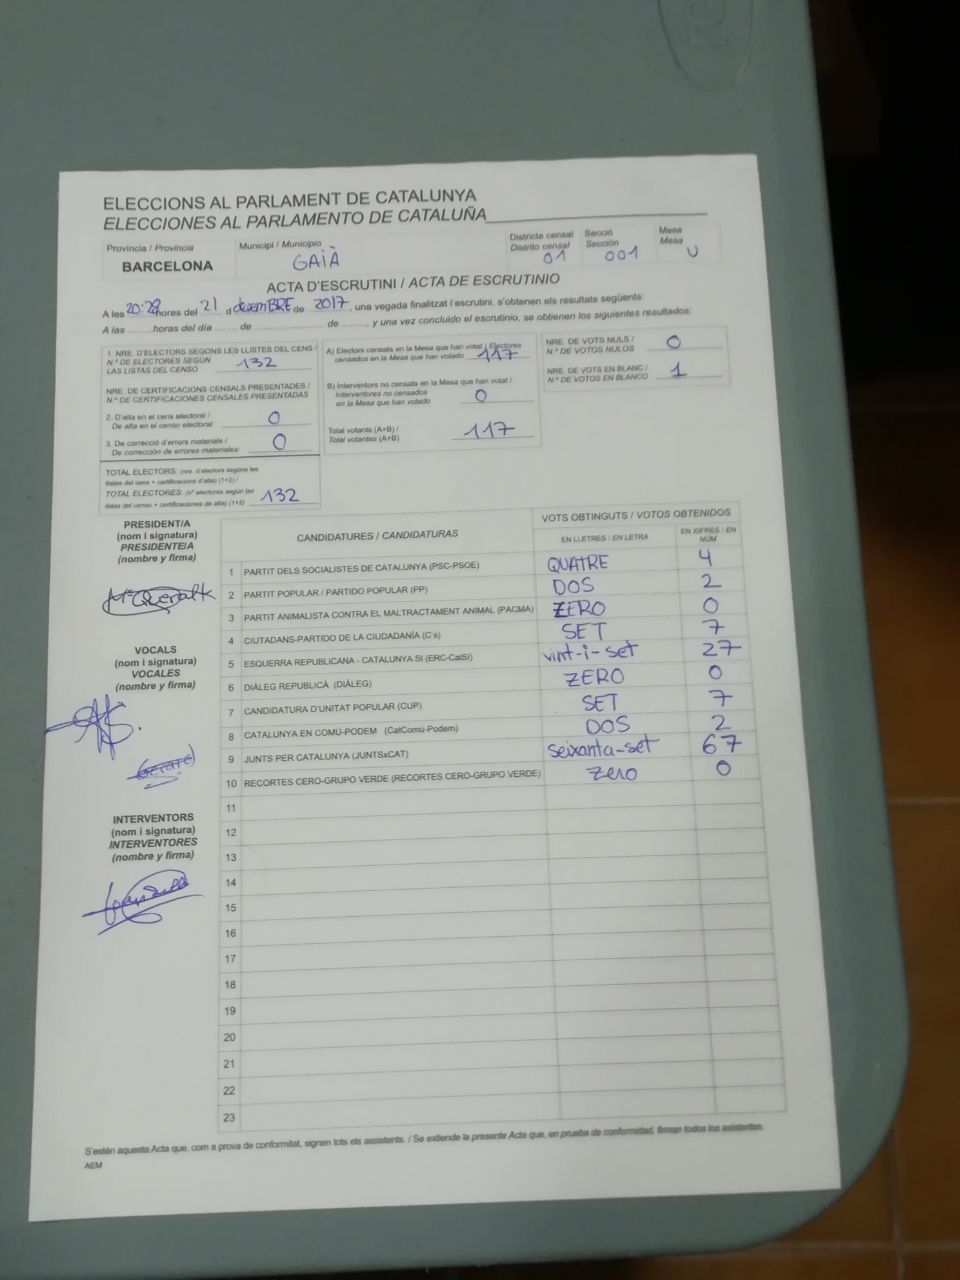 ELECCIONS AL PARLAMENT DE CATALUNYA
ELECCIONES AL PARLAMENTO DE CATALUÑA
Província / Provincia
BARCELONA
Municipi / Municipio
GAIÀ
Districte censal
Distrito censal
01
Secció
Sección
001
Mesa
Mesa
U
ACTA D'ESCRUTINI / ACTA DE ESCRUTINIO
A les 20:28 hores del 21 d desembre de 2017, una vegada finalitzat l'escrutini, s'obtenen els resultats següents:
A las ........ horas del día ........ de ........ de ........, y una vez concluido el escrutinio, se obtienen los siguientes resultados:
1. NRE. D'ELECTORS SEGONS LES LLISTES DEL CENS /
N.º DE ELECTORES SEGÚN
LAS LISTAS DEL CENSO
132
NRE. DE CERTIFICACIONS CENSALS PRESENTADES /
N.º DE CERTIFICACIONES CENSALES PRESENTADAS
2. D'alta en el cens electoral /
De alta en el censo electoral:
0
3. De correcció d'errors materials /
De corrección de errores materiales:
0
TOTAL ELECTORS: (nre. d'electors segons les
llistes del cens + certificacions d'alta) (1+2) /
TOTAL ELECTORES: (nº electores según las
listas del censo + certificaciones de alta) (1+2)
132
A) Electors censats en la Mesa que han votat / Electores
censados en la Mesa que han votado
117
B) Interventors no censats en la Mesa que han votat /
Interventores no censados
en la Mesa que han votado
0
Total votants (A+B) /
Total votantes (A+B)
117
NRE. DE VOTS NULS /
N.º DE VOTOS NULOS
0
NRE. DE VOTS EN BLANC /
N.º DE VOTOS EN BLANCO
1
CANDIDATURES / CANDIDATURAS
VOTS OBTINGUTS / VOTOS OBTENIDOS
EN LLETRES / EN LETRA
EN XIFRES / EN
NÚM
1 PARTIT DELS SOCIALISTES DE CATALUNYA (PSC-PSOE) QUATRE 4
2 PARTIT POPULAR / PARTIDO POPULAR (PP) DOS 2
3 PARTIT ANIMALISTA CONTRA EL MALTRACTAMENT ANIMAL (PACMA) ZERO 0
4 CIUTADANS-PARTIDO DE LA CIUDADANÍA (C's) SET 7
5 ESQUERRA REPUBLICANA - CATALUNYA SÍ (ERC-CatSí) vint-i-set 27
6 DIÀLEG REPUBLICÀ (DIÀLEG) ZERO 0
7 CANDIDATURA D'UNITAT POPULAR (CUP) SET 7
8 CATALUNYA EN COMÚ-PODEM (CatComú-Podem) DOS 2
9 JUNTS PER CATALUNYA (JUNTSxCAT) Seixanta-set 67
10 RECORTES CERO-GRUPO VERDE (RECORTES CERO-GRUPO VERDE) Zero 0
11
12
13
14
15
16
17
18
19
20
21
22
23
PRESIDENT/A
(nom i signatura)
PRESIDENTE/A
(nombre y firma)
VOCALS
(nom i signatura)
VOCALES
(nombre y firma)
INTERVENTORS
(nom i signatura)
INTERVENTORES
(nombre y firma)
S'estén aquesta Acta que, com a prova de conformitat, signen tots els assistents. / Se extiende la presente Acta que, en prueba de conformidad, firman todos los asistentes.
AEM